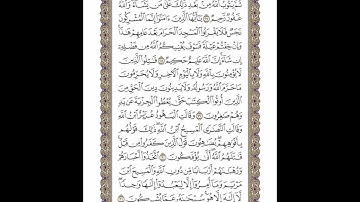 ثُمَّ يَتُوبُ ٱللَّهُ مِنۢ بَعْدِ ذَٰلِكَ عَلَىٰ مَن يَشَآءُ ۗ وَٱللَّهُ
غَفُورٌ رَّحِيمٌ ٢٧ يَٰٓأَيُّهَا ٱلَّذِينَ ءَامَنُوٓا۟ إِنَّمَا ٱلْمُشْرِكُونَ
نَجَسٌ فَلَا يَقْرَبُوا۟ ٱلْمَسْجِدَ ٱلْحَرَامَ بَعْدَ عَامِهِمْ هَٰذَا ۚ
وَإِنْ خِفْتُمْ عَيْلَةً فَسَوْفَ يُغْنِيكُمُ ٱللَّهُ مِن فَضْلِهِۦٓ
إِن شَآءَ ۚ إِنَّ ٱللَّهَ عَلِيمٌ حَكِيمٌ ٢٨ قَٰتِلُوا۟ ٱلَّذِينَ
لَا يُؤْمِنُونَ بِٱللَّهِ وَلَا بِٱلْيَوْمِ ٱلْءَاخِرِ وَلَا يُحَرِّمُونَ
مَا حَرَّمَ ٱللَّهُ وَرَسُولُهُۥ وَلَا يَدِينُونَ دِينَ ٱلْحَقِّ مِنَ
ٱلَّذِينَ أُوتُوا۟ ٱلْكِتَٰبَ حَتَّىٰ يُعْطُوا۟ ٱلْجِزْيَةَ عَن يَدٍ
وَهُمْ صَٰغِرُونَ ٢٩ وَقَالَتِ ٱلْيَهُودُ عُزَيْرٌ ٱبْنُ ٱللَّهِ
وَقَالَتِ ٱلنَّصَٰرَى ٱلْمَسِيحُ ٱبْنُ ٱللَّهِ ۖ ذَٰلِكَ قَوْلُهُم
بِأَفْوَٰهِهِمْ ۖ يُضَٰهِـُٔونَ قَوْلَ ٱلَّذِينَ كَفَرُوا۟ مِن قَبْلُ ۚ
قَٰتَلَهُمُ ٱللَّهُ ۚ أَنَّىٰ يُؤْفَكُونَ ٣٠ ٱتَّخَذُوٓا۟ أَحْبَارَهُمْ
وَرُهْبَٰنَهُمْ أَرْبَابًا مِّن دُونِ ٱللَّهِ وَٱلْمَسِيحَ ٱبْنَ
مَرْيَمَ وَمَآ أُمِرُوٓا۟ إِلَّا لِيَعْبُدُوٓا۟ إِلَٰهًا وَٰحِدًا ۖ
لَّآ إِلَٰهَ إِلَّا هُوَ ۚ سُبْحَٰنَهُۥ عَمَّا يُشْرِكُونَ ٣١